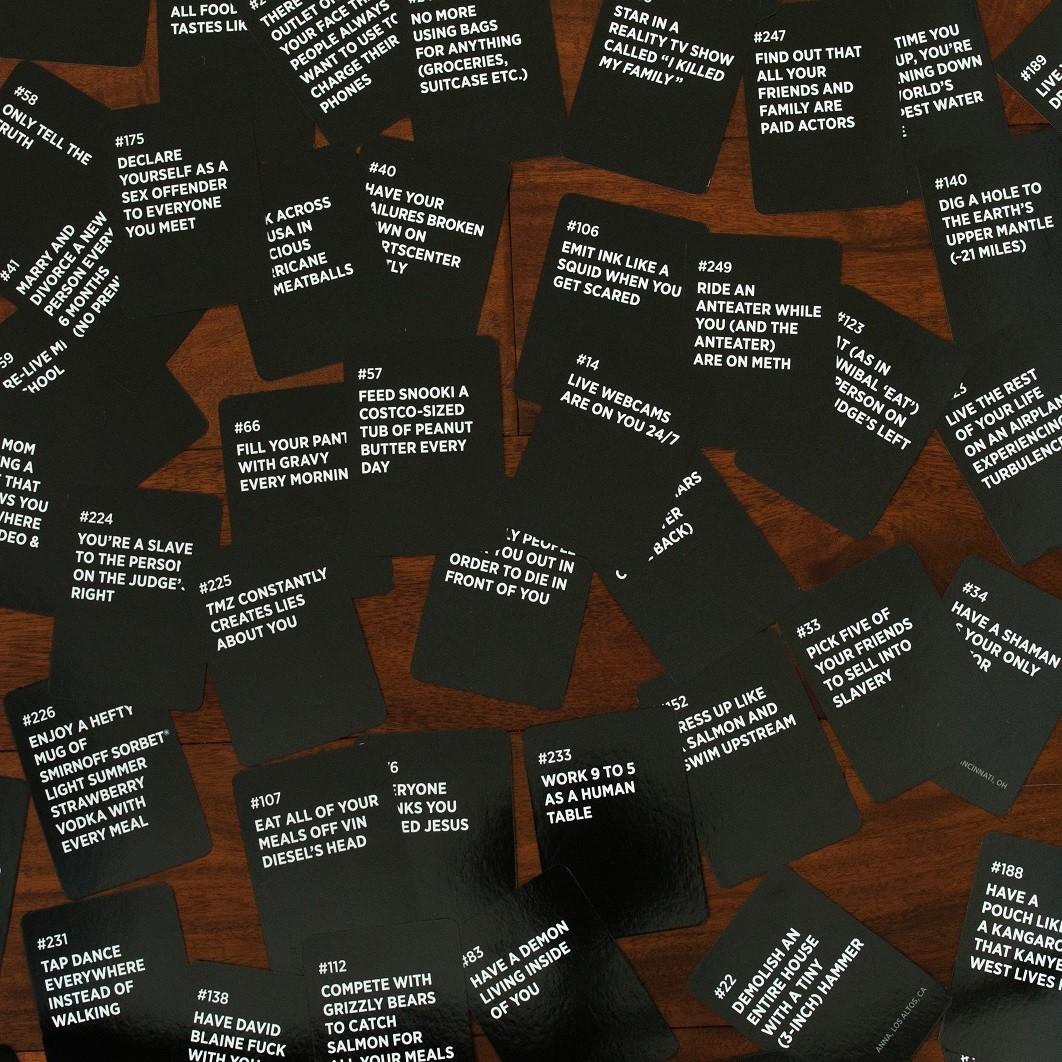 ALL FOOL
TASTES LIK
OUTLET ON
YOUR FACE THAT
PEOPLE ALWAYS
WANT TO USE TO
CHARGE THEIR
PHONES
NO MORE
USING BAGS
FOR ANYTHING
(GROCERIES,
SUITCASE ETC.)
STAR IN A
REALITY TV SHOW
CALLED "I KILLED
MY FAMILY"
#247
FIND OUT THAT
ALL YOUR
FRIENDS AND
FAMILY ARE
PAID ACTORS
TIME YOU
UP, YOU'RE
NING DOWN
ORLD'S
PEST WATER
#189
#58
ONLY TELL THE
RUTH
#175
DECLARE
YOURSELF AS A
SEX OFFENDER
TO EVERYONE
YOU MEET
K ACROSS
USA IN
CIOUS
RICANE
MEATBALLS
#40
HAVE YOUR
AILURES BROKEN
WN ON
RTSCENTER
TLY
#140
DIG A HOLE TO
THE EARTH'S
UPPER MANTLE
(~21 MILES)
#41
MARRY AND
DIVORCE A NEW
PERSON EVERY
6 MONTHS
(NO PREN
#106
EMIT INK LIKE A
SQUID WHEN YOU
GET SCARED
#249
RIDE AN
ANTEATER WHILE
YOU (AND THE
ANTEATER)
ARE ON METH
#123
AT (AS IN
NNIBAL 'EAT')
PERSON ON
DGE'S LEFT
59
RE-LIVE MI
HOOL
#57
FEED SNOOKI A
COSTCO-SIZED
TUB OF PEANUT
BUTTER EVERY
DAY
#14
LIVE WEBCAMS
ARE ON YOU 24/7
LIVE THE REST
OF YOUR LIFE
ON AN AIRPLAN
EXPERIENCING
TURBULENC
#66
FILL YOUR PANT
WITH GRAVY
EVERY MORNIN
MOM
NG A
THAT
WS YOU
WHERE
DEO &
ARS
ER
BACK)
#224
YOU'RE A SLAVE
TO THE PERSON
ON THE JUDGE'
RIGHT
#225
TMZ CONSTANTLY
CREATES LIES
ABOUT YOU
LY PEOPLE
YOU OUT IN
ORDER TO DIE IN
FRONT OF YOU
#33
PICK FIVE OF
YOUR FRIENDS
TO SELL INTO
SLAVERY
#34
HAVE A SHAMAN
S YOUR ONLY
OR
NCINNATI, OH
#226
ENJOY A HEFTY
MUG OF
SMIRNOFF SORBET®
LIGHT SUMMER
STRAWBERRY
VODKA WITH
EVERY MEAL
152
RESS UP LIKE
SALMON AND
SWIM UPSTREAM
#233
WORK 9 TO 5
AS A HUMAN
TABLE
#107
EAT ALL OF YOUR
MEALS OFF VIN
DIESEL'S HEAD
6
ERYONE
NKS YOU
ED JESUS
#188
HAVE A
POUCH LIKE
A KANGARO
THAT KANYE
WEST LIVES I
#231
TAP DANCE
EVERYWHERE
INSTEAD OF
WALKING
#83
HAVE A DEMON
LIVING INSIDE
OF YOU
#22
DEMOLISH AN
ENTIRE HOUSE
WITH A TINY
(3-INCH) HAMMER
ANNA, LOS ALTOS, CA
#112
COMPETE WITH
GRIZZLY BEARS
TO CATCH
SALMON FOR
ALL YOUR MEALS
#138
HAVE DAVID
BLAINE FUCK
WITH YOU